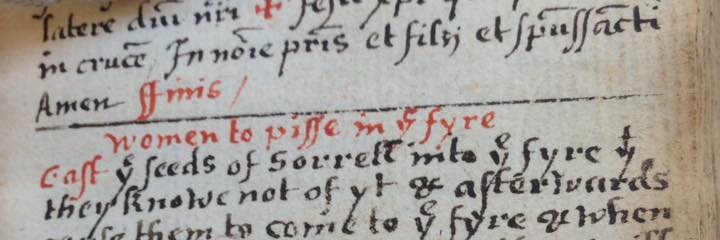 latere dni nri ✠ Jesu xpi
in cruce, In noie pris et filij et spussancti
Amen ffinis /
women to pisse in yͤ fyre
Cast yͤ seeds of Sorrell into yͤ fyre yͭ
they knowe not of yt & afterwards
cause them to come to yͤ fyre & when